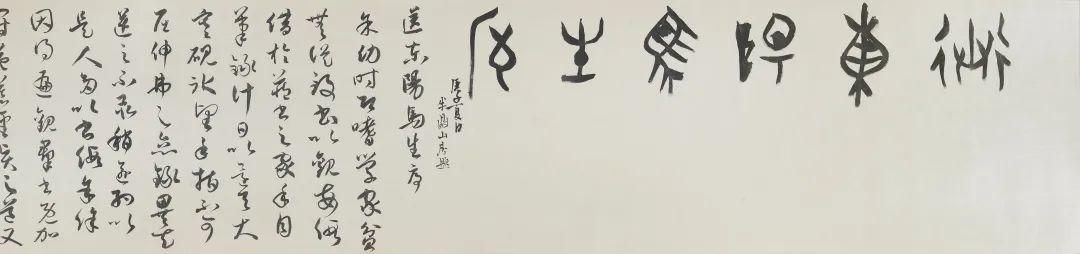 送東陽馬生序
庚子夏日
送東陽馬生序
余幼时即嗜學家貧
無從致書以觀每假
借於藏書之家手自
筆錄计日以還天大
寒硯冰堅手指不可
屈伸弗之怠錄畢走
送之不敢稍逾约以
是人多以書假余余
因得遍觀羣書既加
冠益慕聖賢之道又